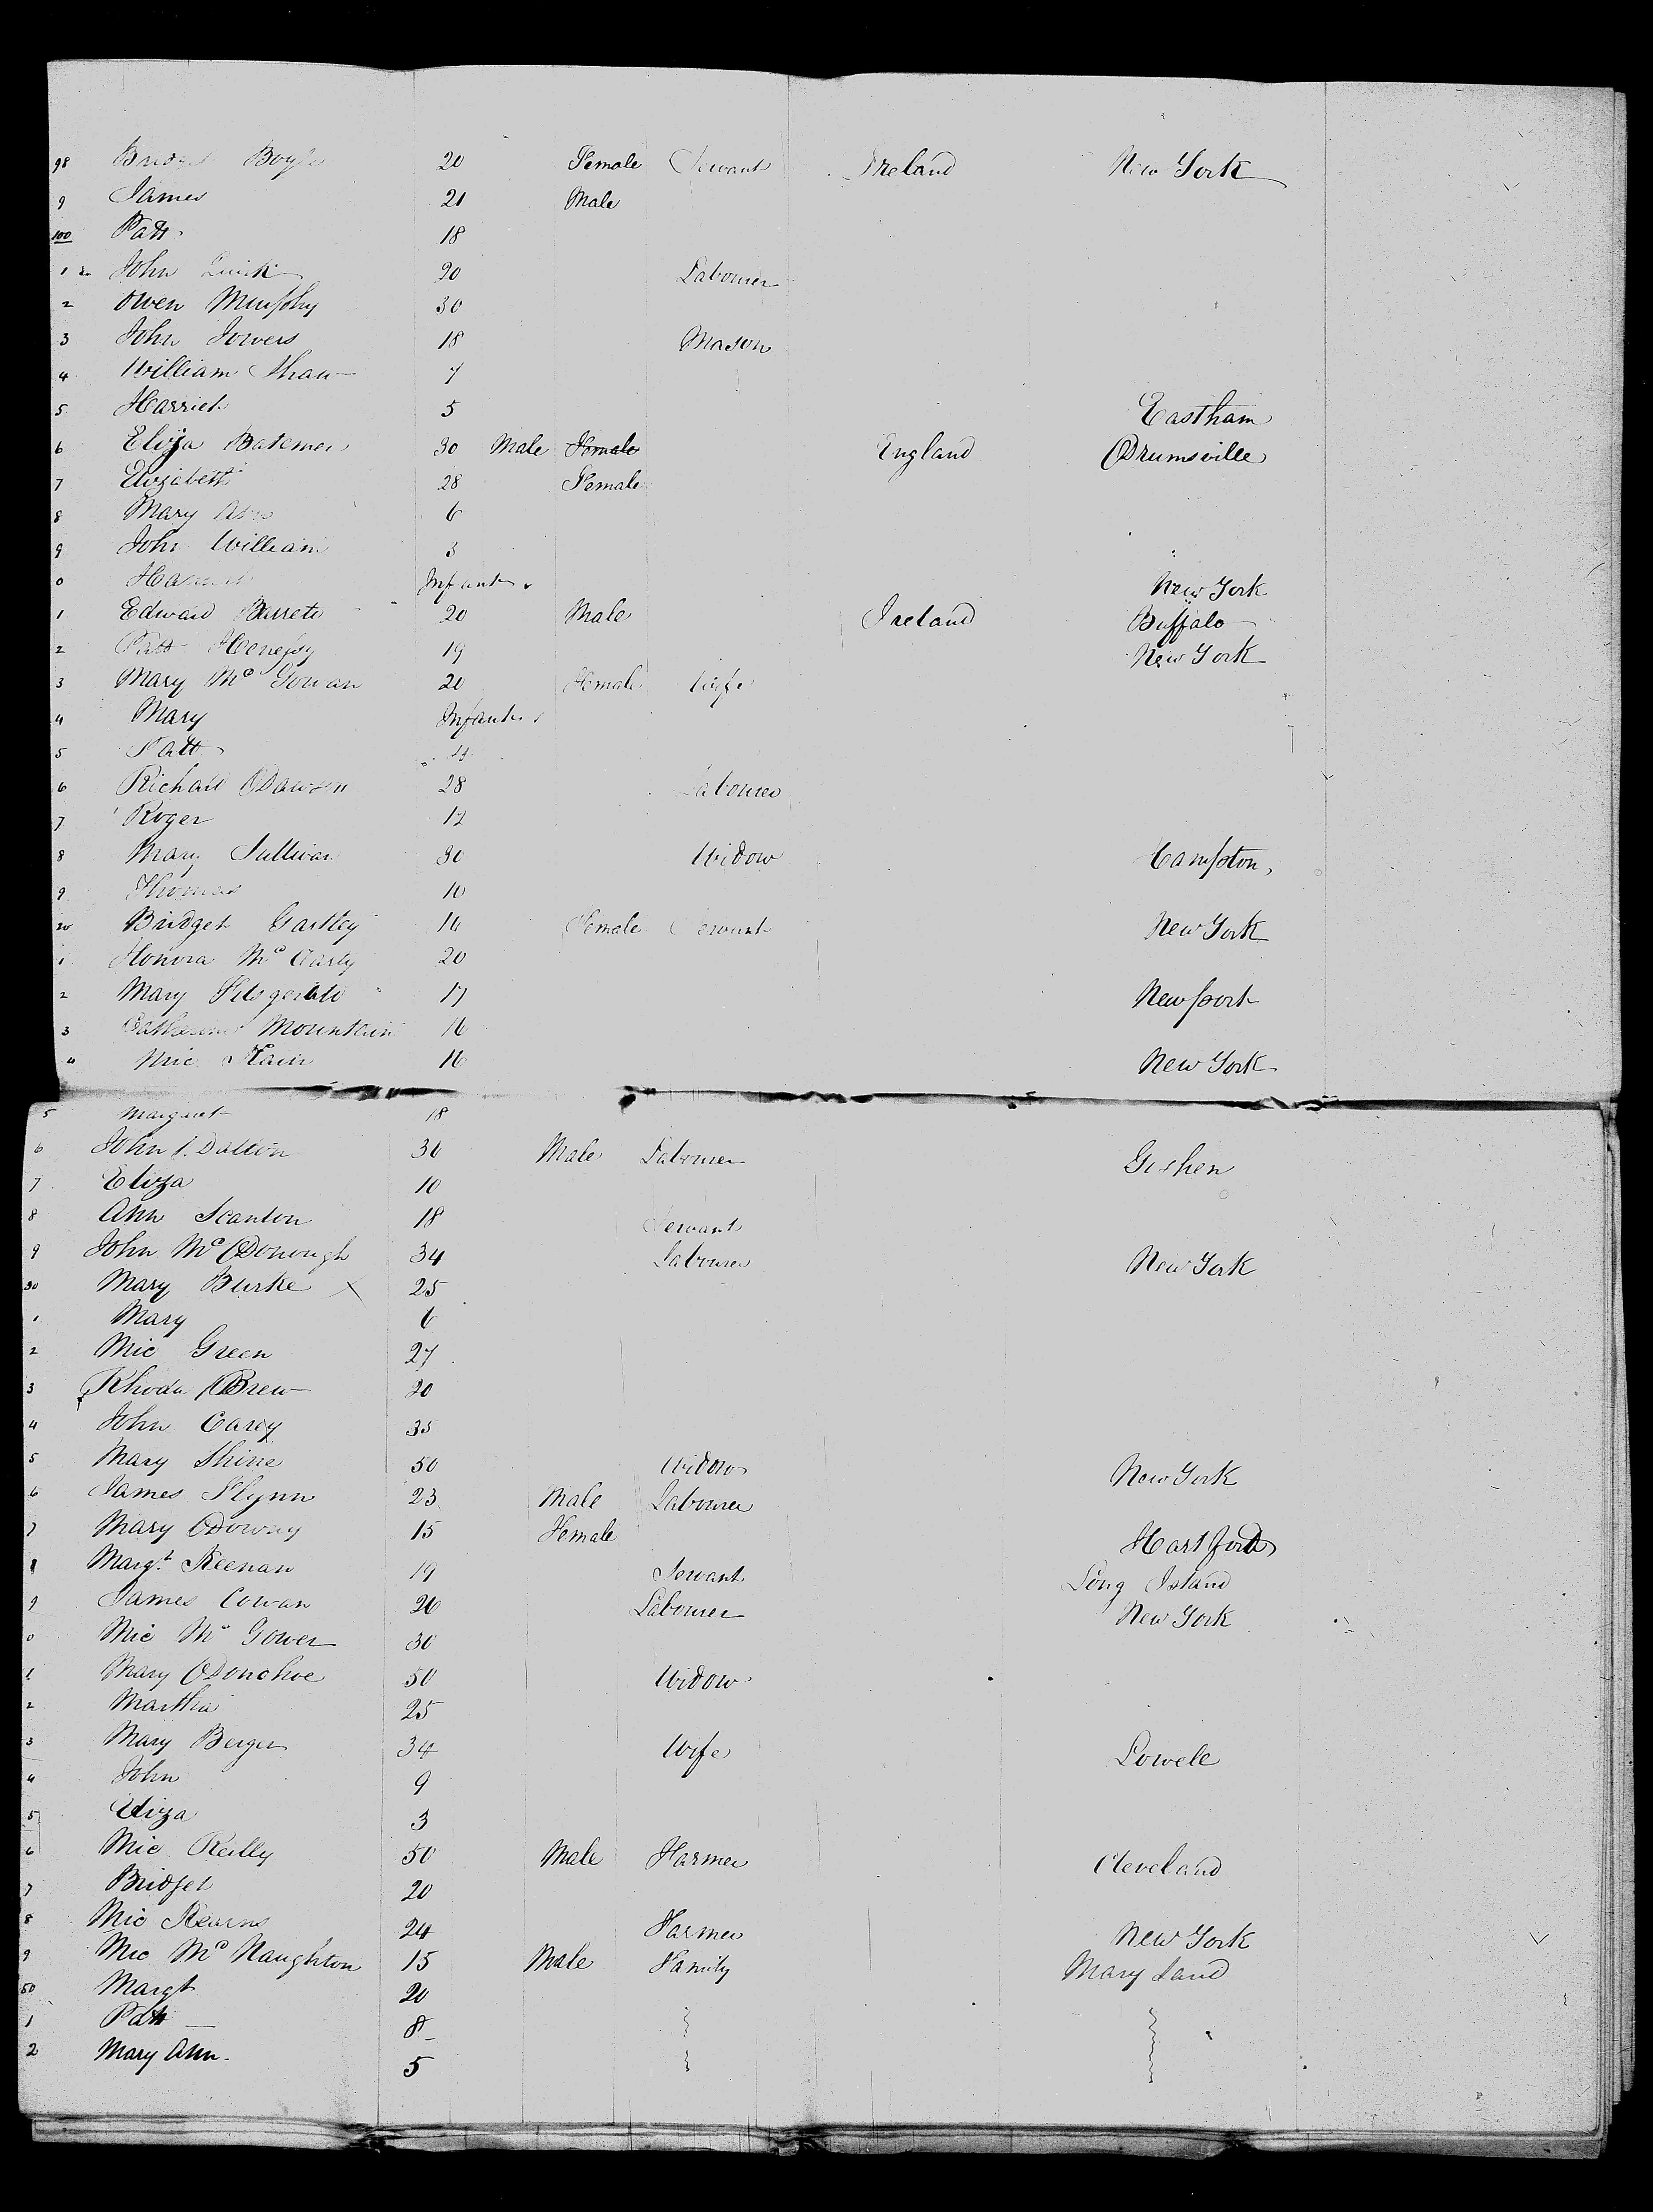 98 Bridget Boyle 20 Female Servant Ireland New York
9 James 21 Male
100 Patt 18
1 John Quirk 20 Labourer
2 Owen Murphy 30
3 John Jowers 18 Mason
4 William Shaw 7
5 Harriet 5 Eastham
6 Eliza Batemen 30 Male Female England Drumsville
7 Elizabeth 28 Female
8 Mary Ann 6
9 John William 3
0 Hannah Infant New York
1 Edward Barrett 20 Male Ireland Buffalo
2 Patt Henessy 19 New York
3 Mary Mc Gowan 20 Female Wife
4 Mary Infant
5 Patt
6 Richard Dawson 28 Labourer
7 Roger 12
8 Mary Sullivan 30 Widow Campton
9 Thomas 10
20 Bridget Gartley 16 Female Servant New York
1 Honora Mc Carty 20
2 Mary Fitsgerald 17 Newport
3 Catherine Mountain 16
4 Mic Hain 16 New York
5 Margaret 18
6 John Dalton 30 Male Labourer Goshen
7 Eliza 10
8 Ann Scanlon 18 Servant
9 John Mc Donough 34 Labourer New York
30 Mary Burke x 25
1 Mary 6
2 Mic Green 27
3 Rhoda Brew 20
4 John Carey 35
5 Mary Shine 50 Widow New York
6 James Flynn 23 Male Labourer
7 Mary Downy 15 Female Hartford
8 Margt Keenan 19 Servant Long Island
9 James Cowan 26 Labourer New York
0 Mic Mc Gower 30
1 Mary ODonohoe 50 Widow
2 Martha 25
3 Mary Berger 34 Wife Lowele
4 John 9
5 Eliza 3
6 Mic Reilly 50 Male Farmer Cleveland
7 Bridget 20
8 Mic Kearns 24 Farmer New York
9 Mic Mc Naughton 15 Male Family Mary Land
50 Margt 20
1 Patt 8
2 Mary Ann 5